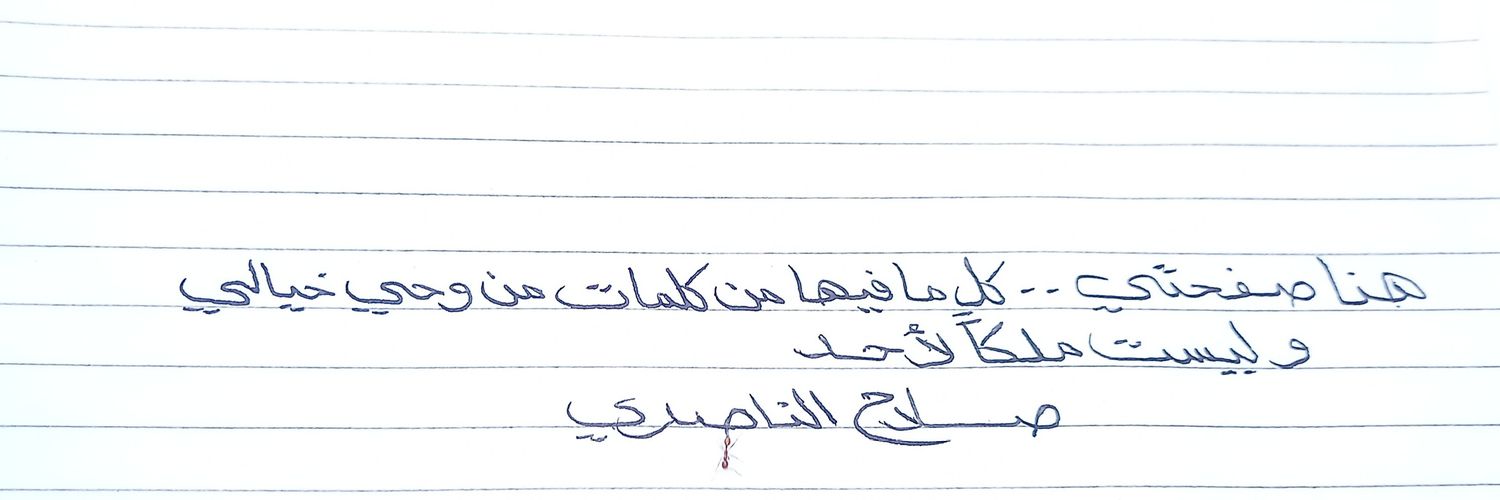 هنا صفحتي .. كل ما فيها من كلمات من وحي خيالي
وليست ملكاً لأحد
صلاح الناصري